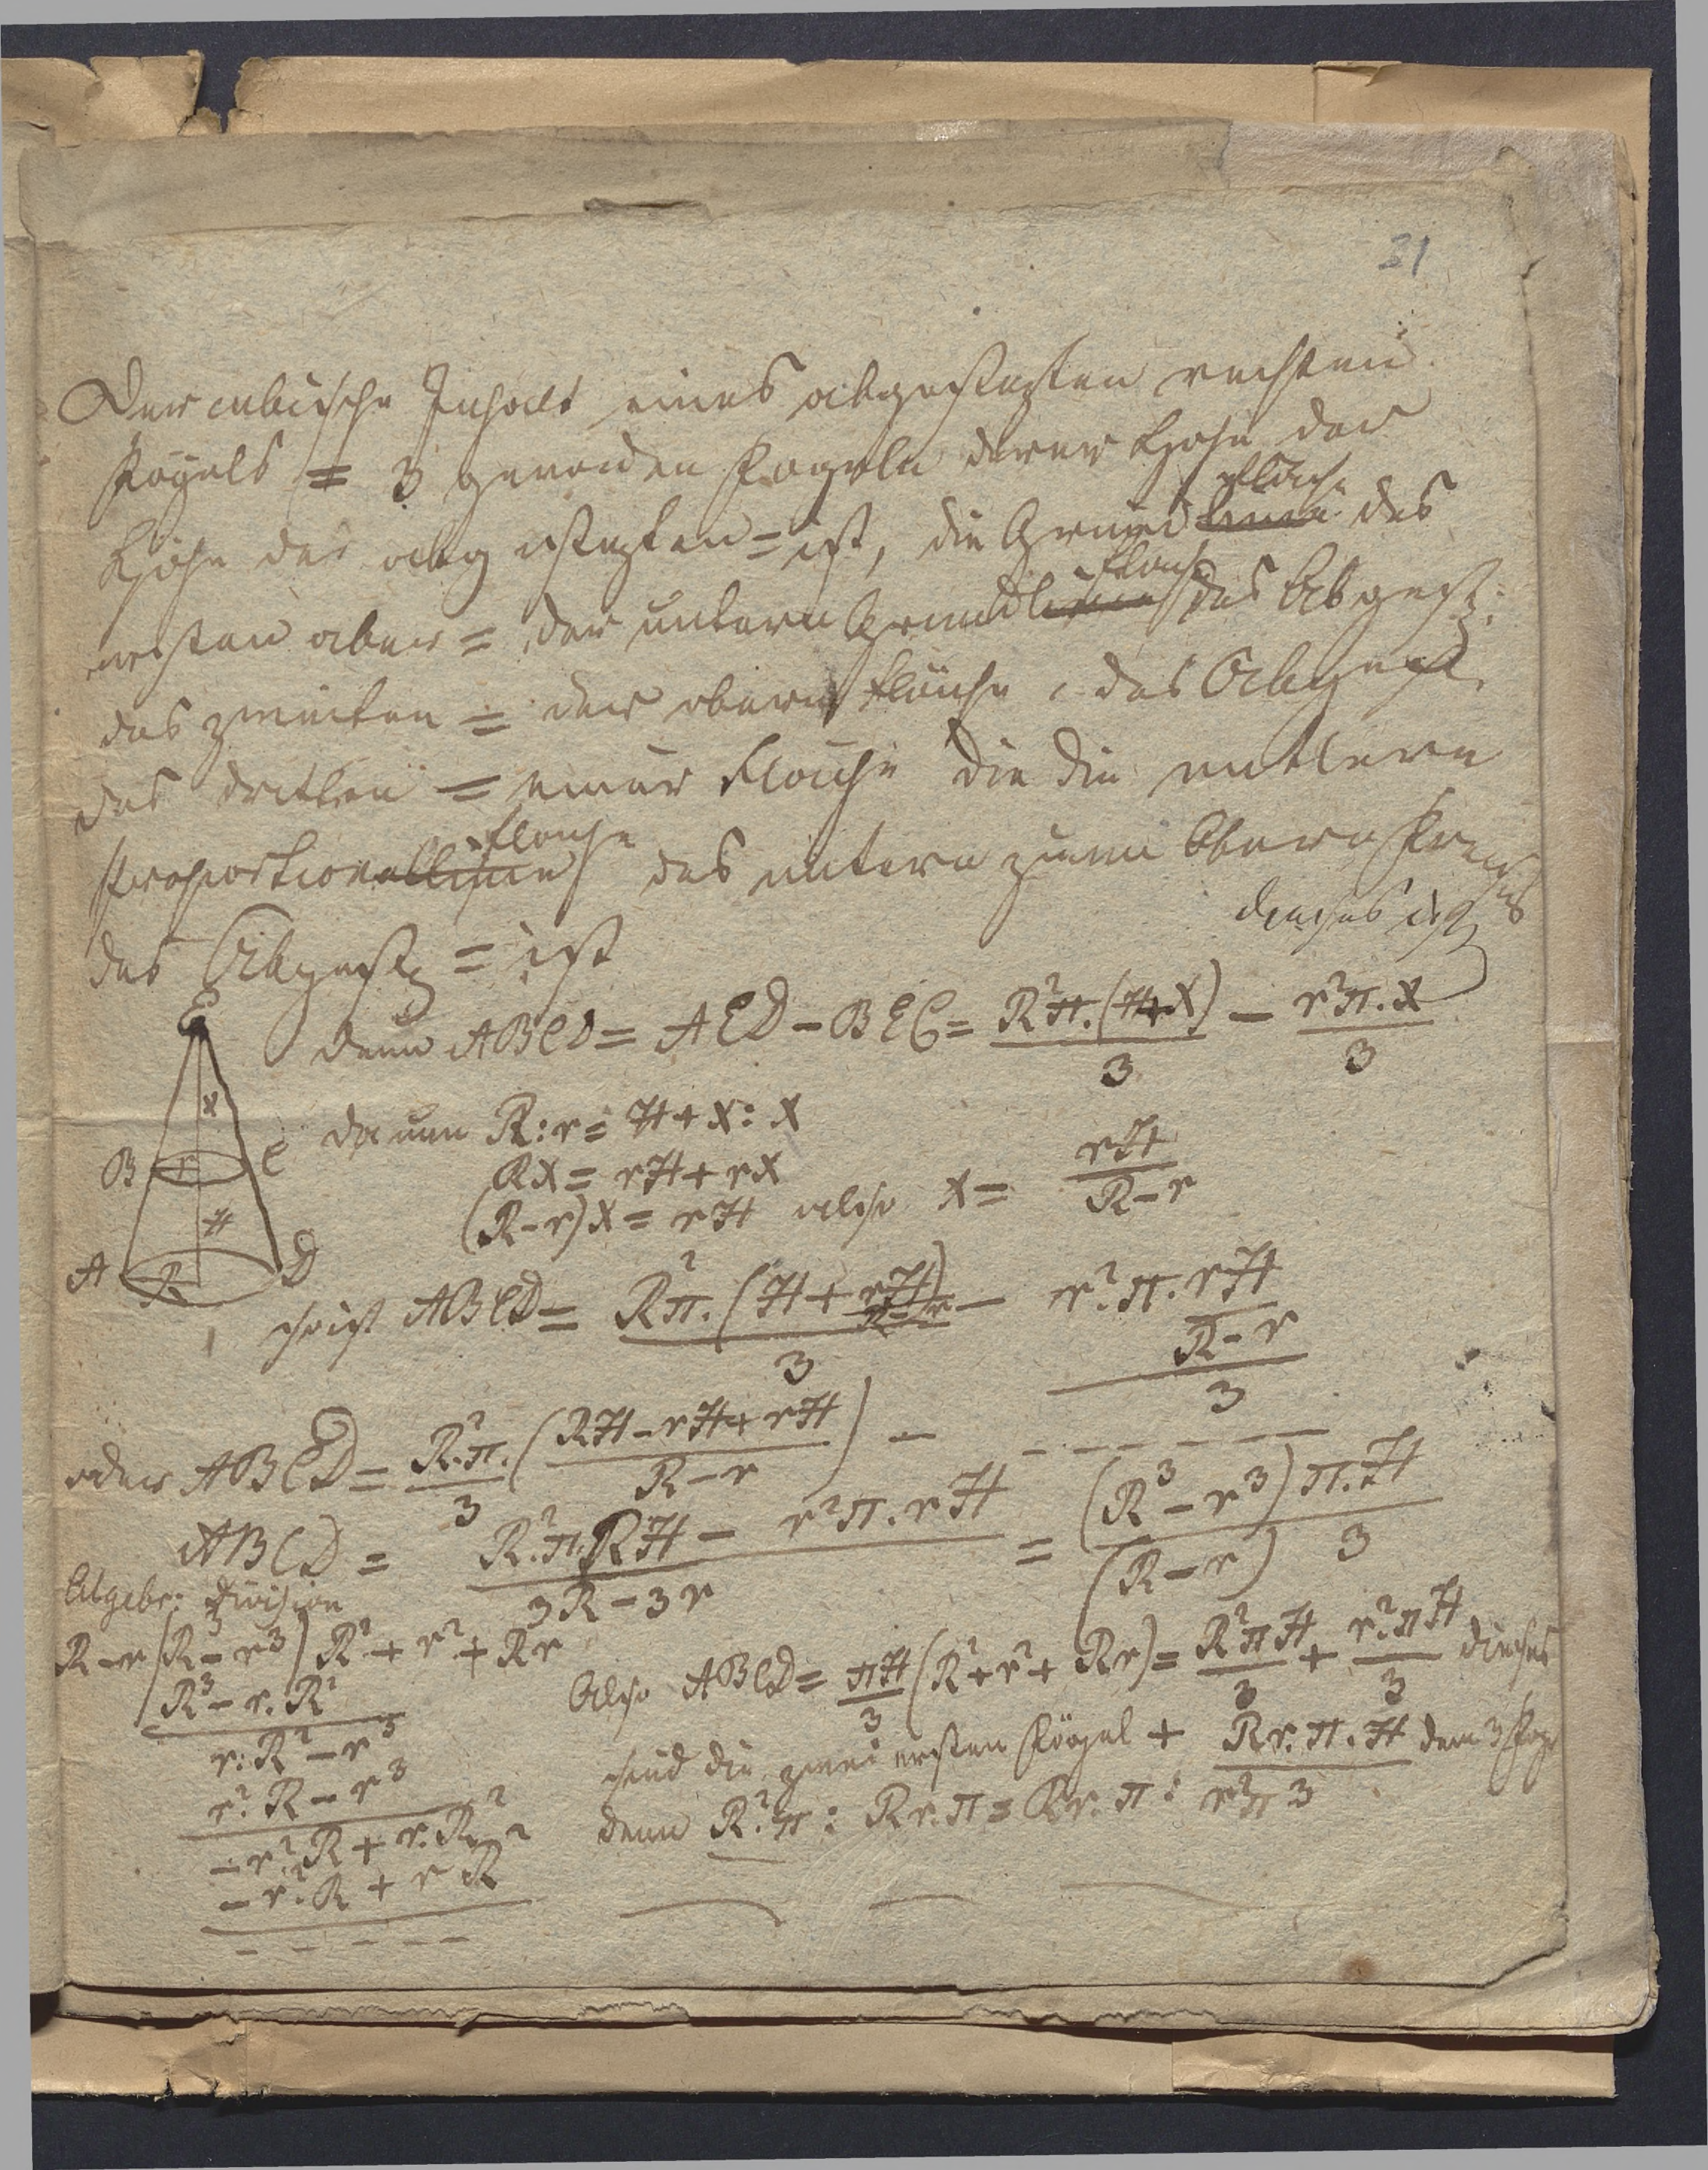 31
Der cubische Inhalt eines abgestezten rechten
Kögels = 3 geraden Kogeln derer Höhe der
Höhe des abg estezten = ist, die Grund linie fläche des
ersten aber = der untern Grundlinie fläche des Abgest:
des zweiten = der obern Fläche des Abgest.
des dritten = einer Fläche die die mitlere
Proportionallinie fläche des untern zum Obern Kreises
des Abgestz = ist
dieses ist
E
denn ABCD = AED - BEC = R²π.(H+X)/3 - r²π.X/3
x
da nun R:r = H+X:X
B r C
RX = rH + rX
(R-r)X = rH also X = rH/(R-r)
H
A R D
so ist ABCD = R²π.(H + rH/(R-r))/3 - r².π.rH/(R-r)/3
oder ABCD = R².π./3 (RH - rH + rH / R-r) - - - - - - -
ABCD = R².π.RH - r²π.rH / 3R-3r = (R³-r³)π.H / (R-r) 3
Algebr: Division
R-r/R³-r³) R²+r²+Rr
Also ABCD = πH/3 (R²+r²+Rr) = R²πH/3 + r²πH/3 dieses
R³-r.R²
r.R²-r³
sind die zwei ersten Kögel + Rr.π.H/3 dem 3 Kog
r².R-r³
denn R².π : Rr.π = Rr.π : r²π
-r²R+r.R²
-r².R+rR²
- - - - -